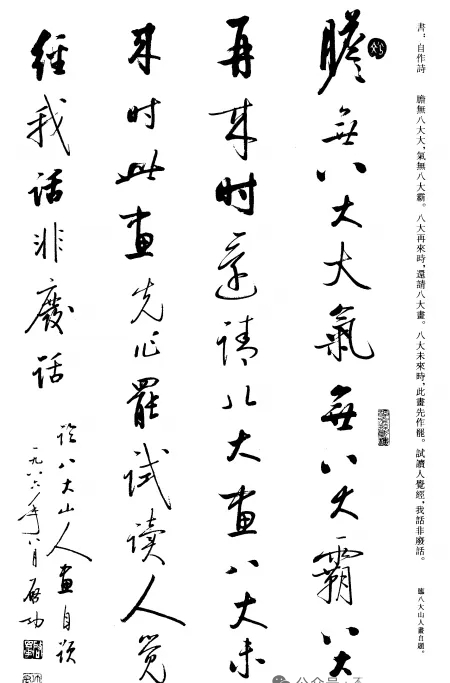 書：自作詩　膽無八大大，氣無八大霸。八大再來時，還請八大畫。八大未來時，此畫先作罷。試讀人覺經，我話非廢話。　臨八大山人畫自題。
膽無八大大氣無八大霸八大
再来时還請八大畫八大未
来时此畫先作罷試讀人覺
經我話非廢話
臨八大山人畫自題
一九八六年八月啓功
公众号